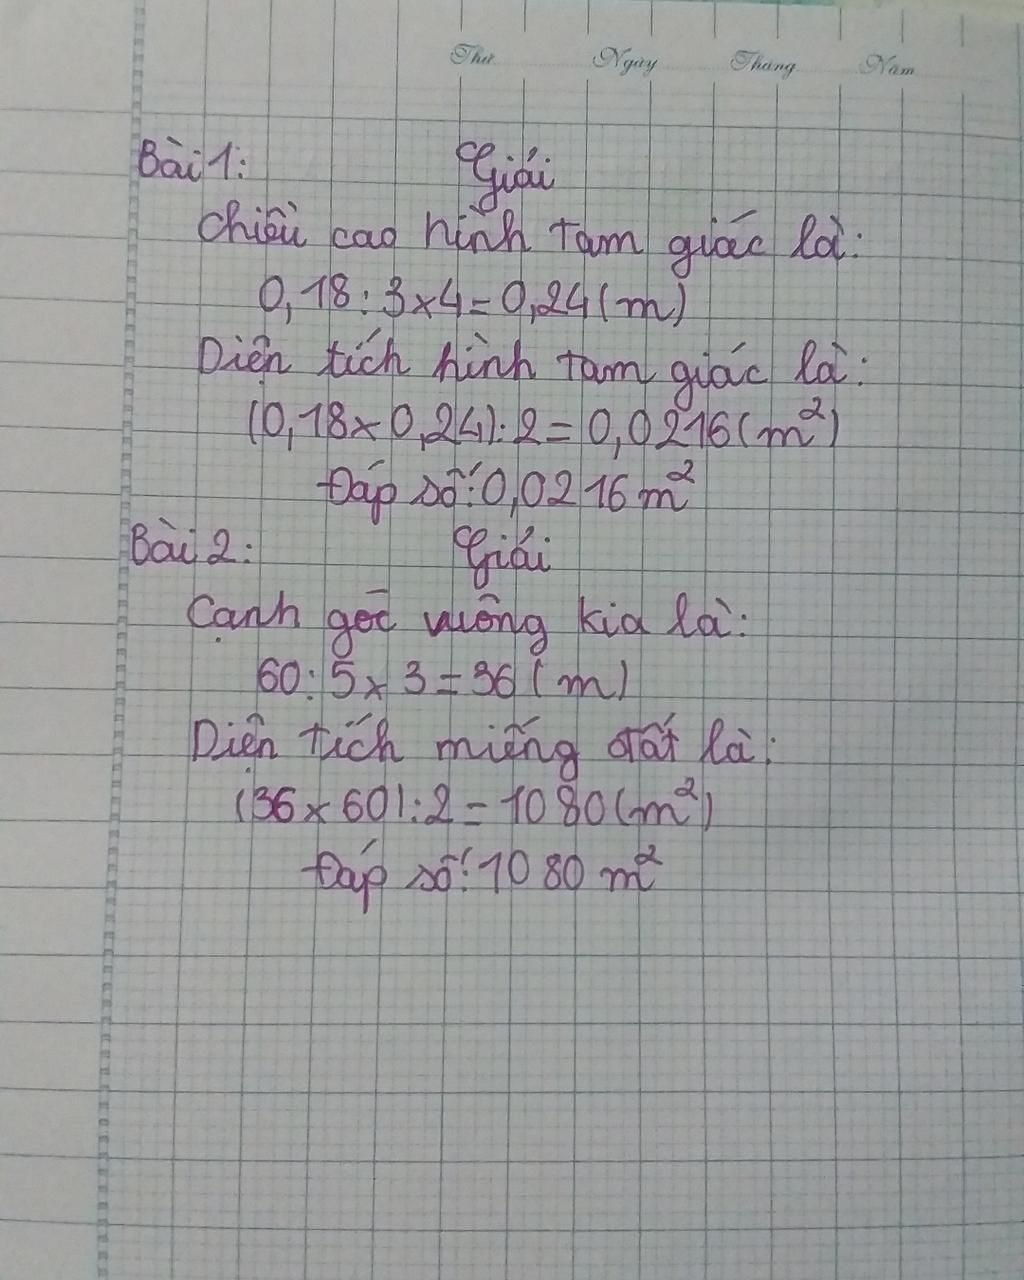 Thứ Ngày Tháng Năm
Bài 1: Giải
Chiều cao hình tam giác là:
0,18 : 3 x 4 = 0,24 (m)
Diện tích hình tam giác là:
(0,18 x 0,24) : 2 = 0,0216 (m²)
Đáp số: 0,0216 m²
Bài 2: Giải
Cạnh góc vuông kia là:
60 : 5 x 3 = 36 (m)
Diện tích miếng đất là:
(36 x 60) : 2 = 1080 (m²)
Đáp số: 1080 m²